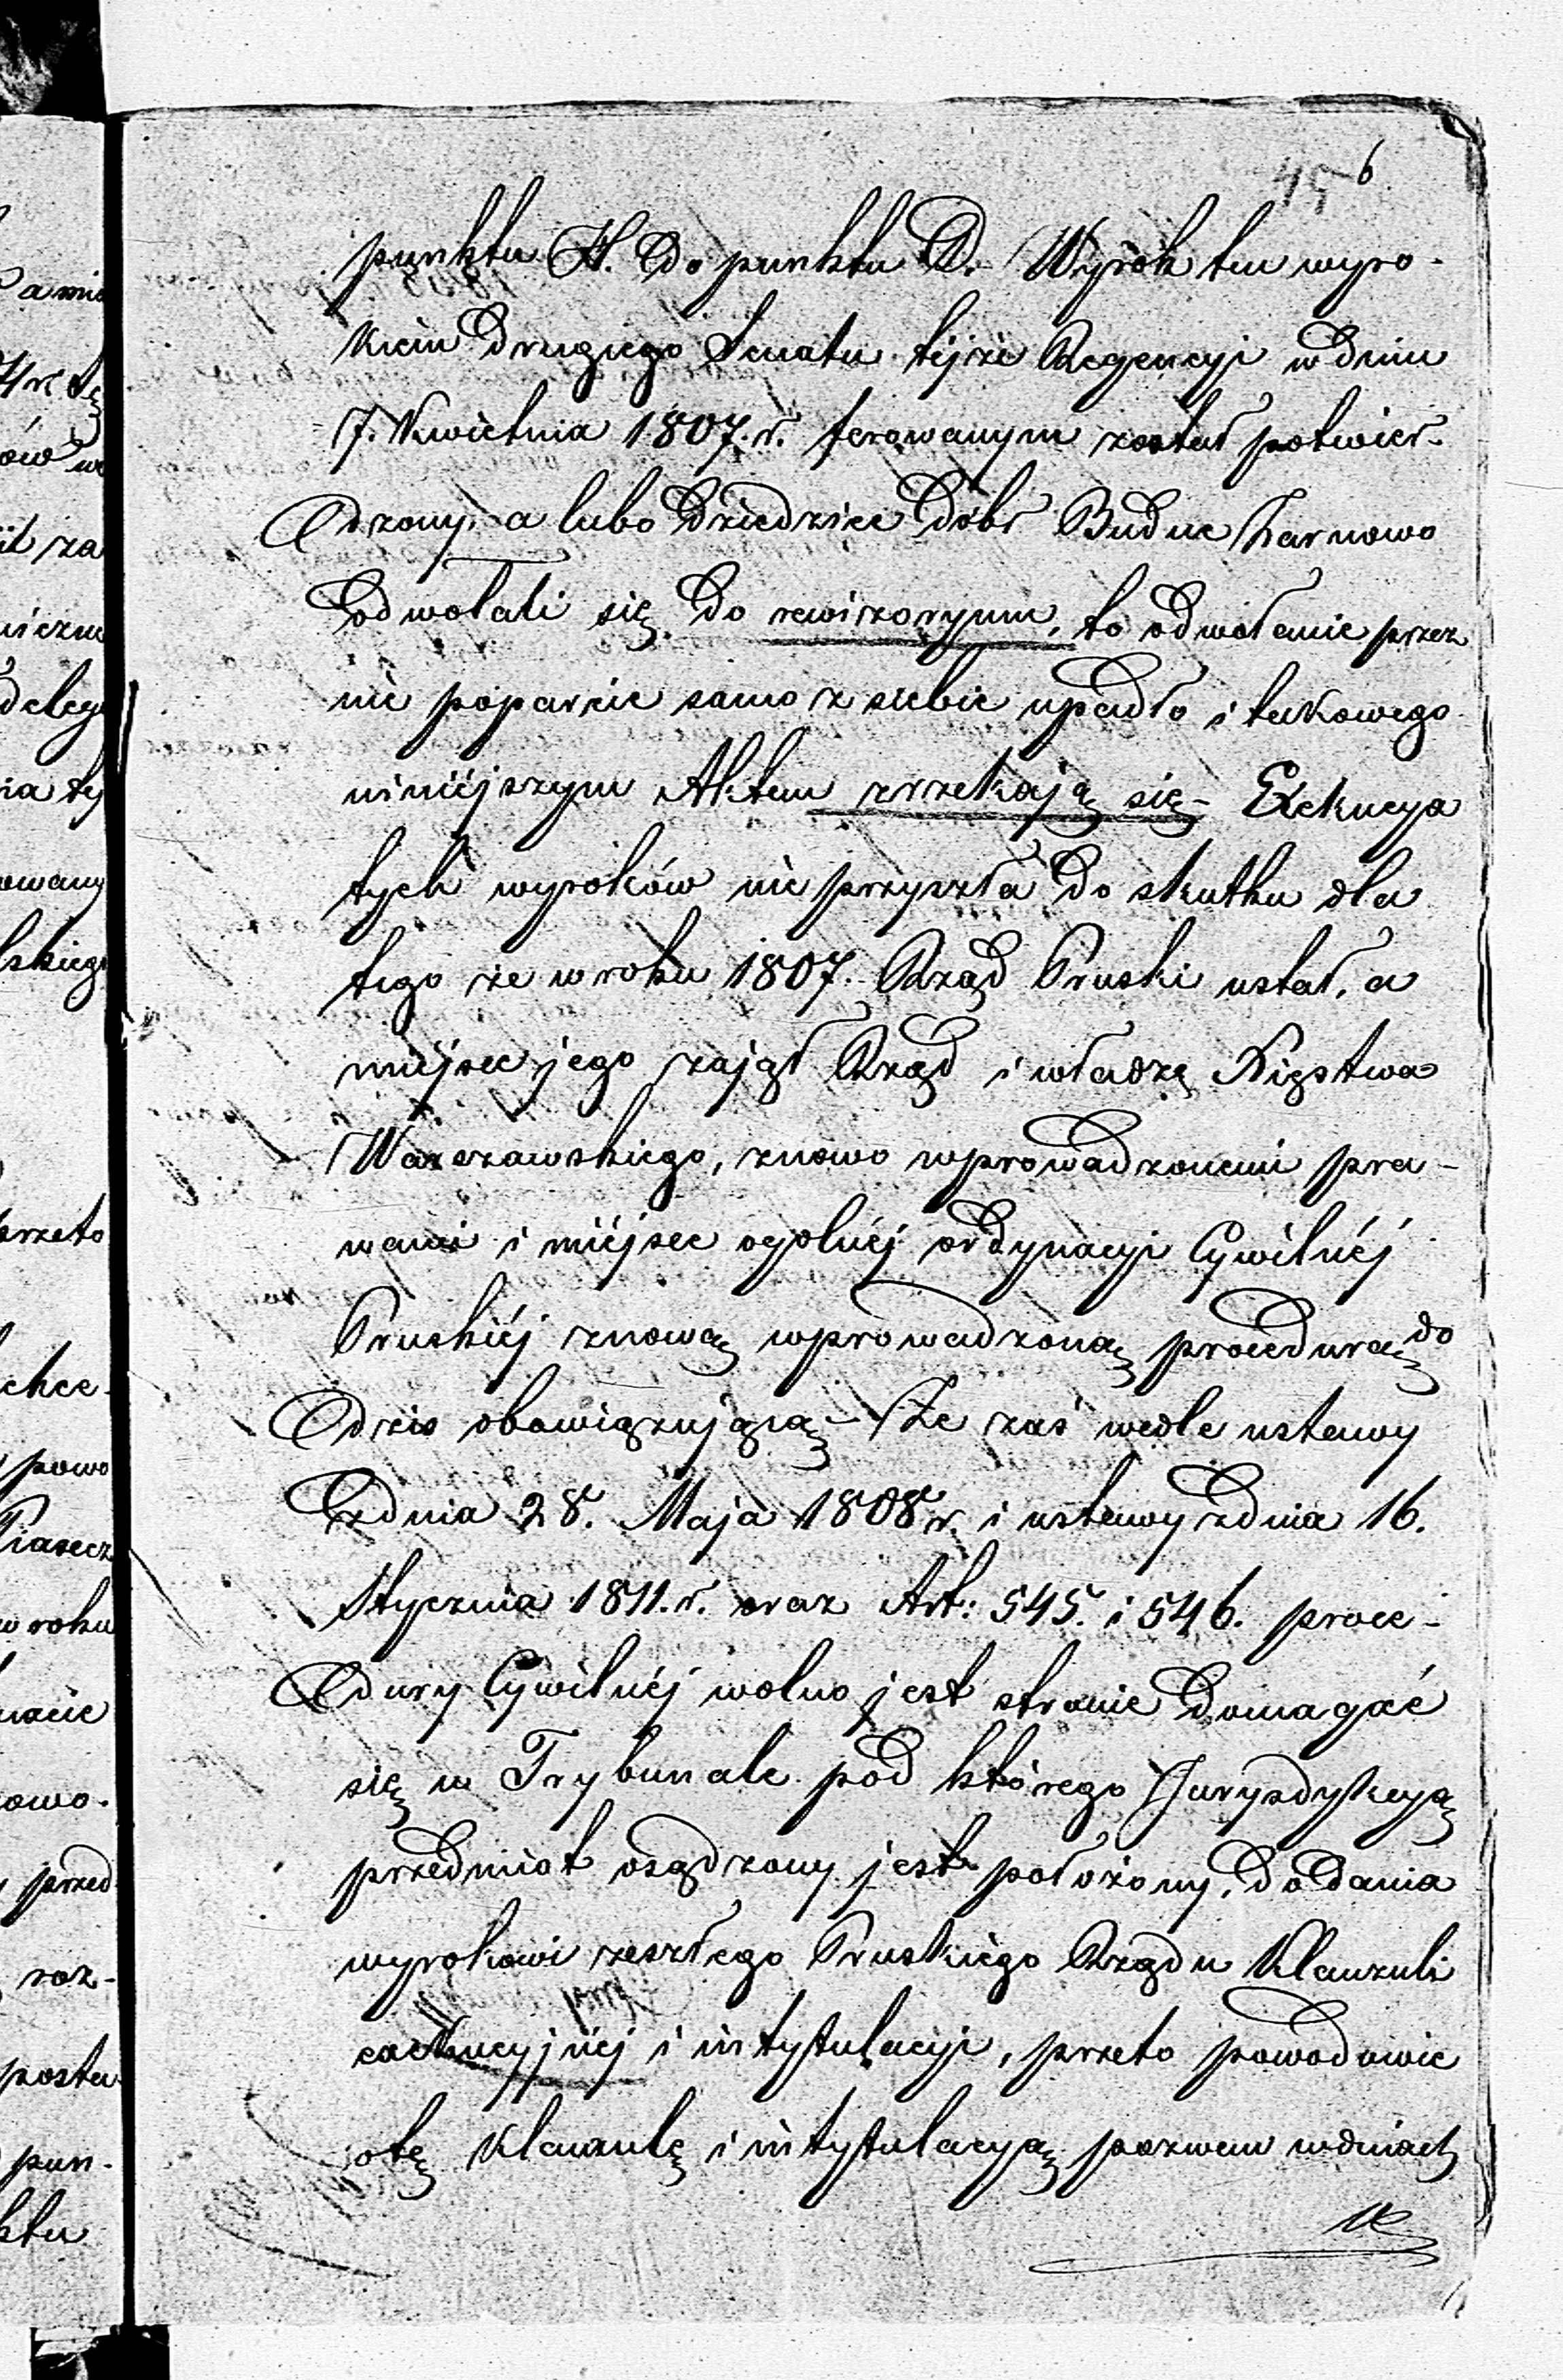 45 6
punktu H. do punktu D. Wyrok ten wyro-
kiem drugiego Senatu tejże Regencyi w dniu
7. Kwietnia 1807. r. ferowanym został potwier-
dzony, a lubo dziedzice dóbr Budne Żarnowo
odwołali się do rewizoryum, to odwołanie przez
nie poparcie samo z siebie upadło i takowego
niniéjszym Aktem zrzekają się - Exekucya
tych wyroków nie przyszła do skutku dla
tego że w roku 1807. Rząd Pruski ustał, a
miéjsce jego zajął Rząd i władzę Xięstwa
Warszawskiego, znowo wprowadzonemi pra-
wami i miéjsce ogolnéj ordynacyi Cywilnéj
Pruskiéj znową wprowadzoną procedurą do
dziś obowiązującą - Że zaś wedle ustawy
z dnia 28. Maja 1808 r. i ustawy z dnia 16.
Stycznia 1811. r. oraz Art: 545. i 546. proce-
dury Cywilnéj wolno jest stronie domagać
się w Trybunale pod którego Jurysdykcyą
przedmiot osądzony jest położony, dodania
wyrokowi zeszłego Pruskiego Rządu Klauzuli
exekucyjnéj i intytulacyi, przeto powodowie
o tę Klauzulę i intytulacyą pozwem w dniach